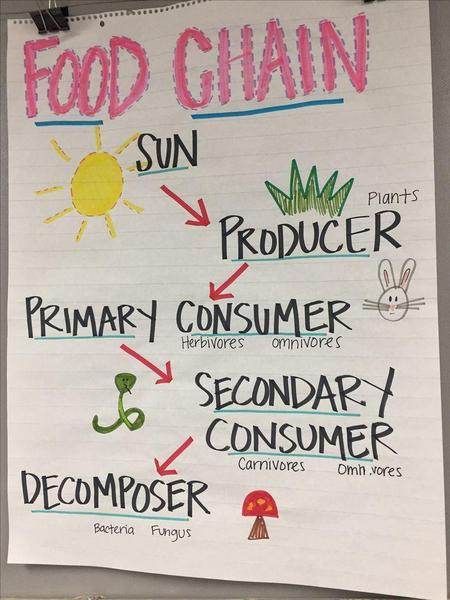 FOOD CHAIN
SUN
Plants
PRODUCER
PRIMARY CONSUMER
Herbivores omnivores
SECONDARY
CONSUMER
Carnivores Omnivores
DECOMPOSER
Bacteria Fungus